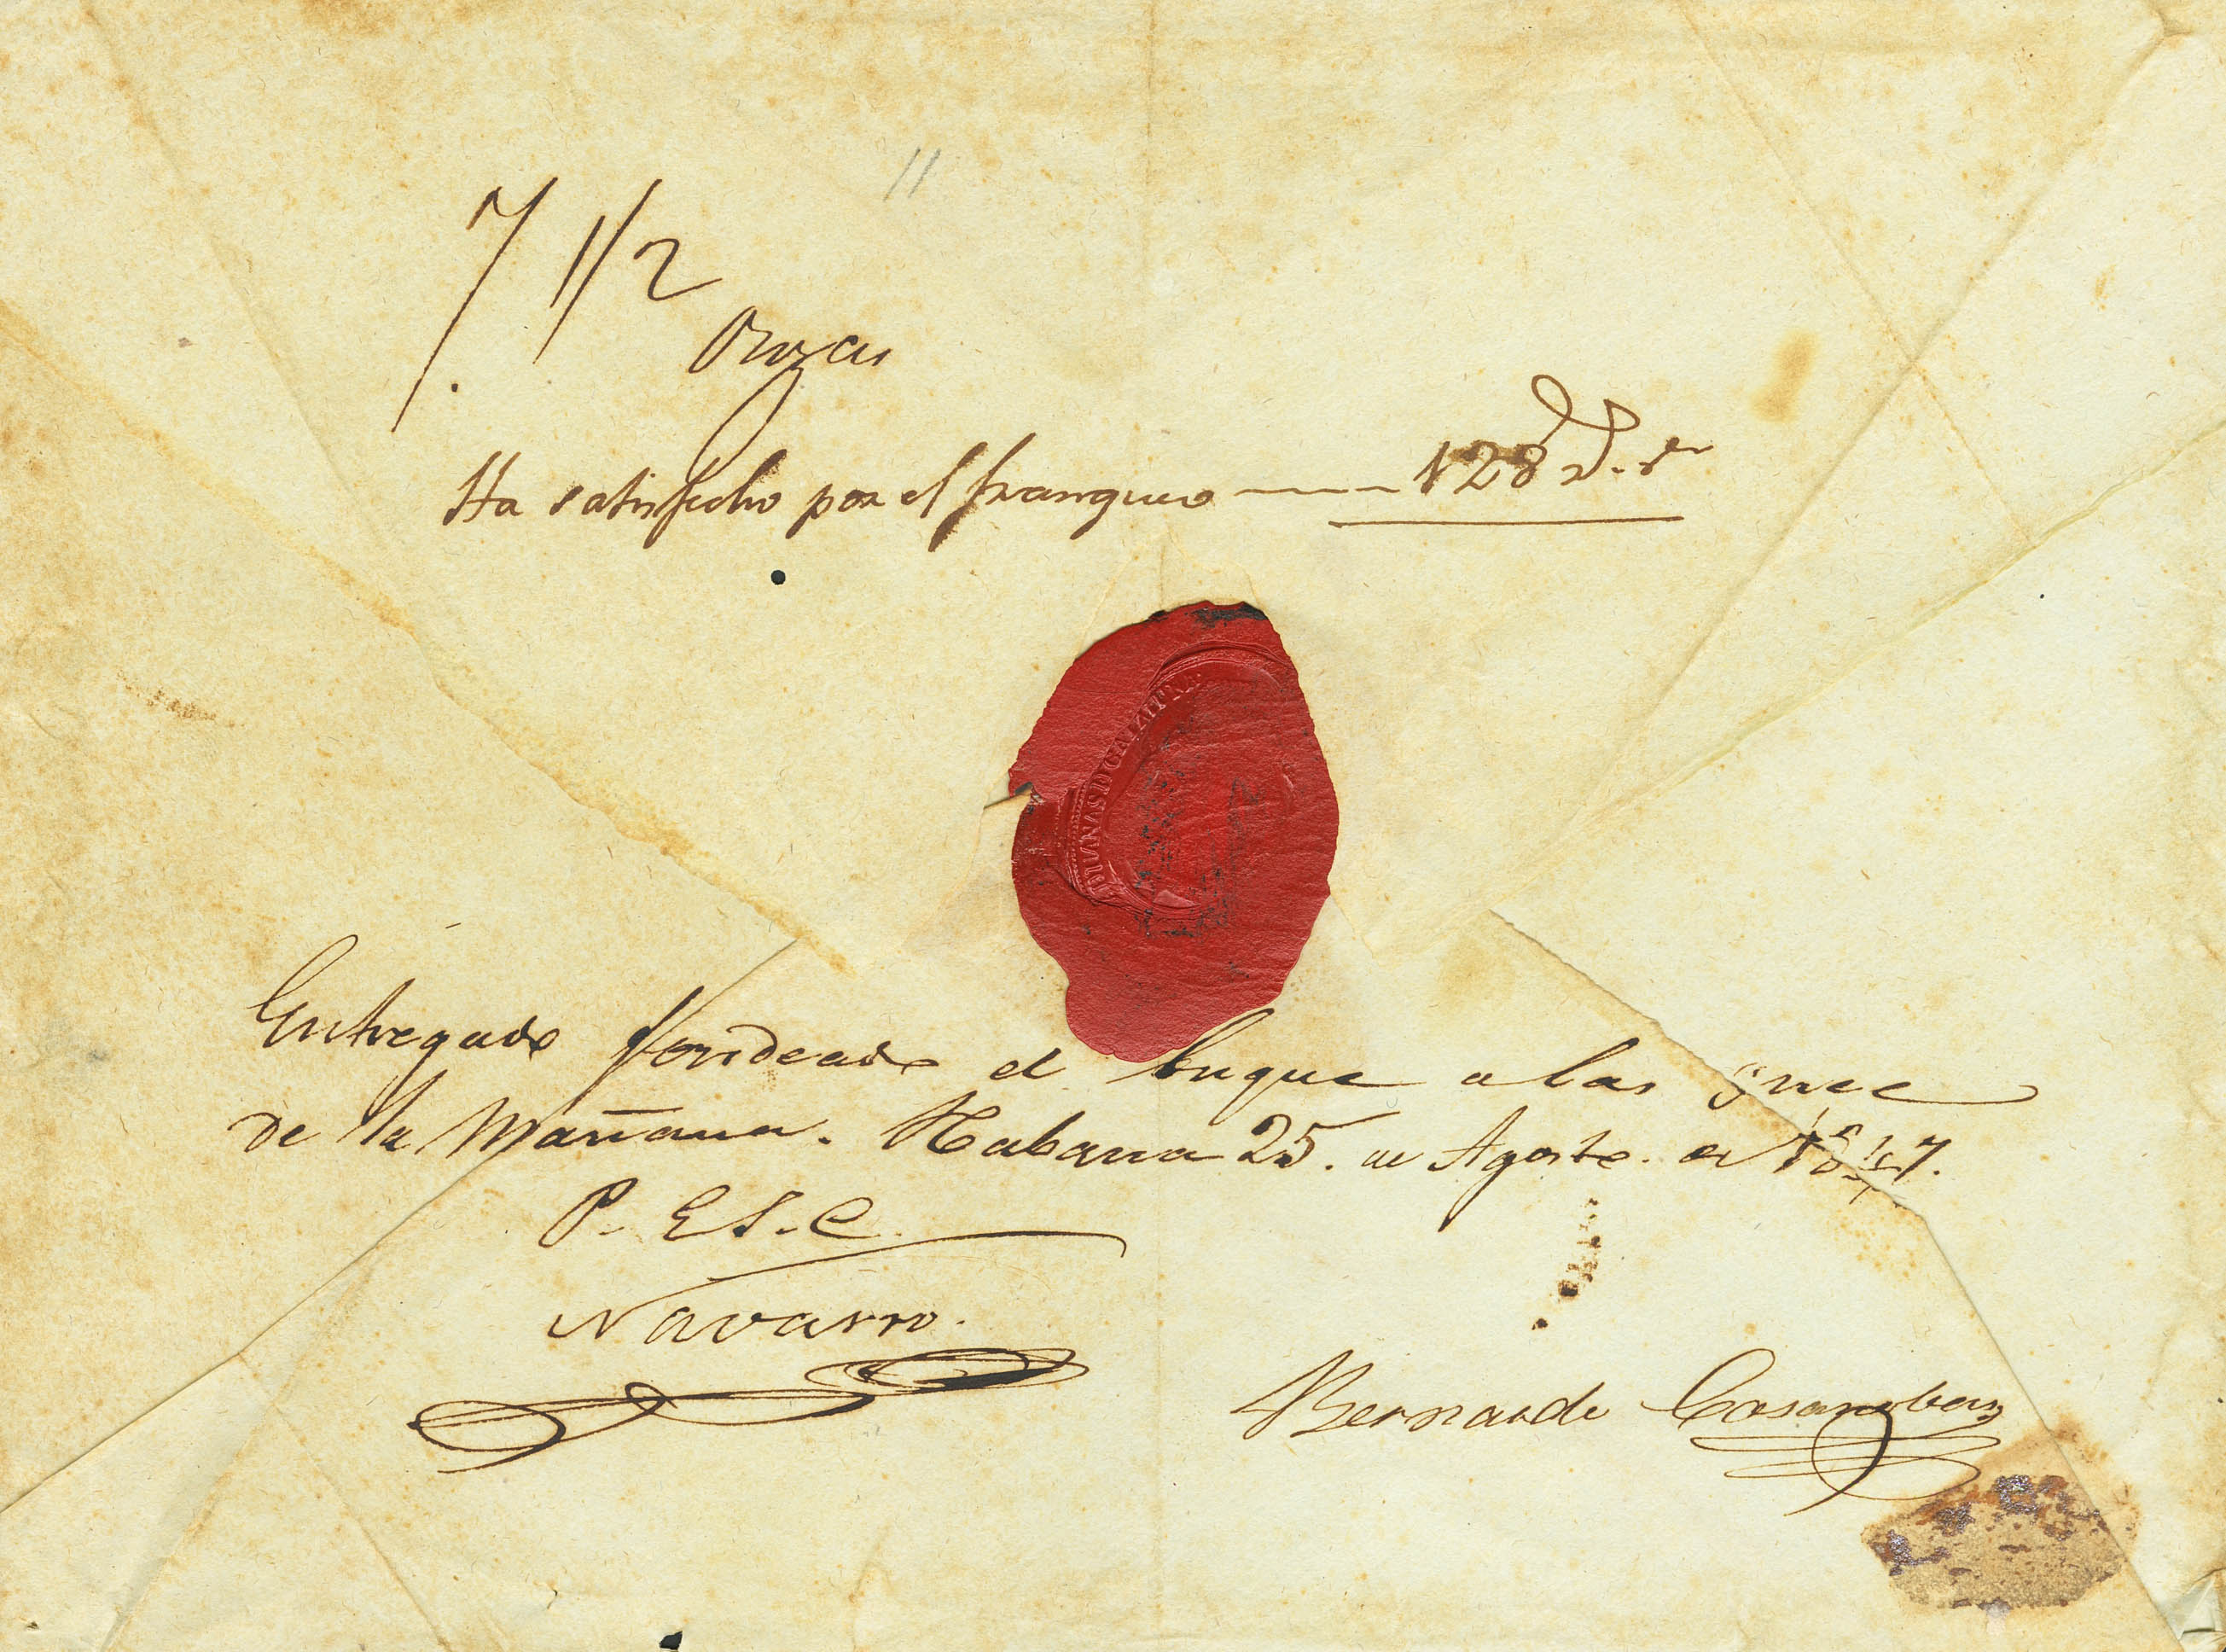 11
7 1/2
Onzas
Ha satisfecho por el franqueo 128
Entregado fondeado el buque a las once
de la Mañana. Habana 25. de Agosto de 1847.
P. E S. C.
Navarro.
Bernardo